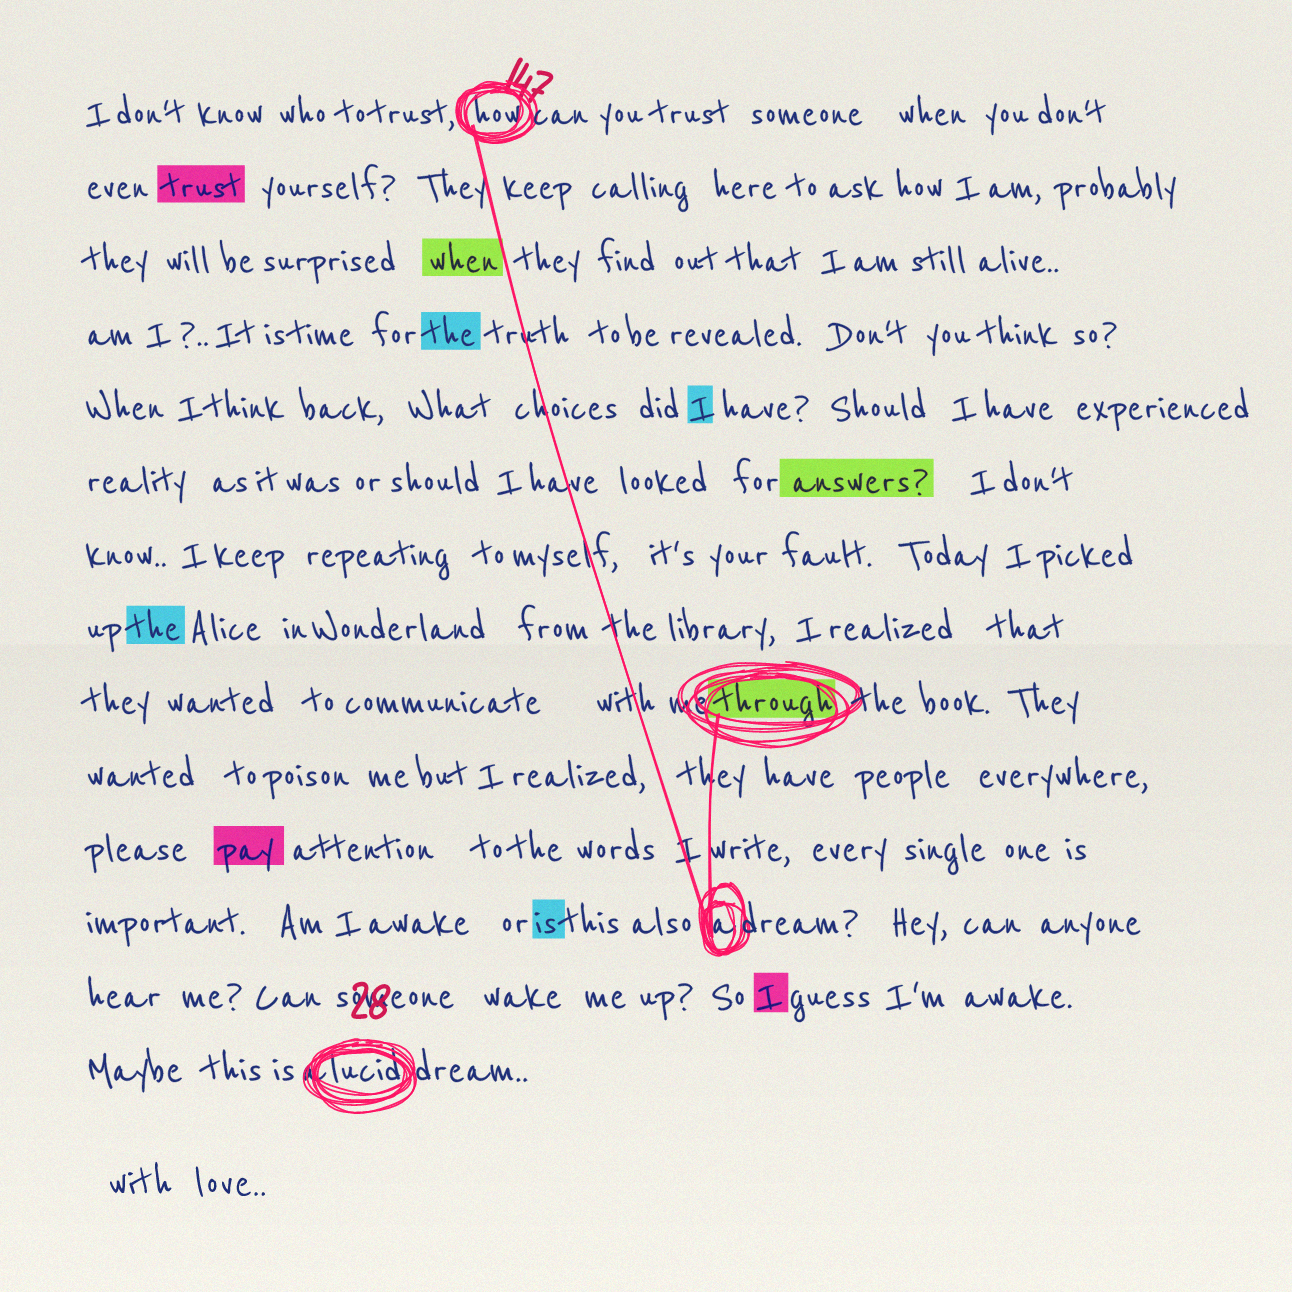 42
I don't know who to trust, how can you trust someone when you don't
even trust yourself? They keep calling here to ask how I am, probably
they will be surprised when they find out that I am still alive..
am I?.. It is time for the truth to be revealed. Don't you think so?
When I think back, What choices did I have? Should I have experienced
reality as it was or should I have looked for answers? I don't
know.. I keep repeating to myself, it's your fault. Today I picked
up the Alice in Wonderland from the library, I realized that
they wanted to communicate with me through the book. They
wanted to poison me but I realized, they have people everywhere,
please pay attention to the words I write, every single one is
important. Am I awake or is this also a dream? Hey, can anyone
hear me? Can someone wake me up? So I guess I'm awake.
28
Maybe this is a lucid dream..
with love..